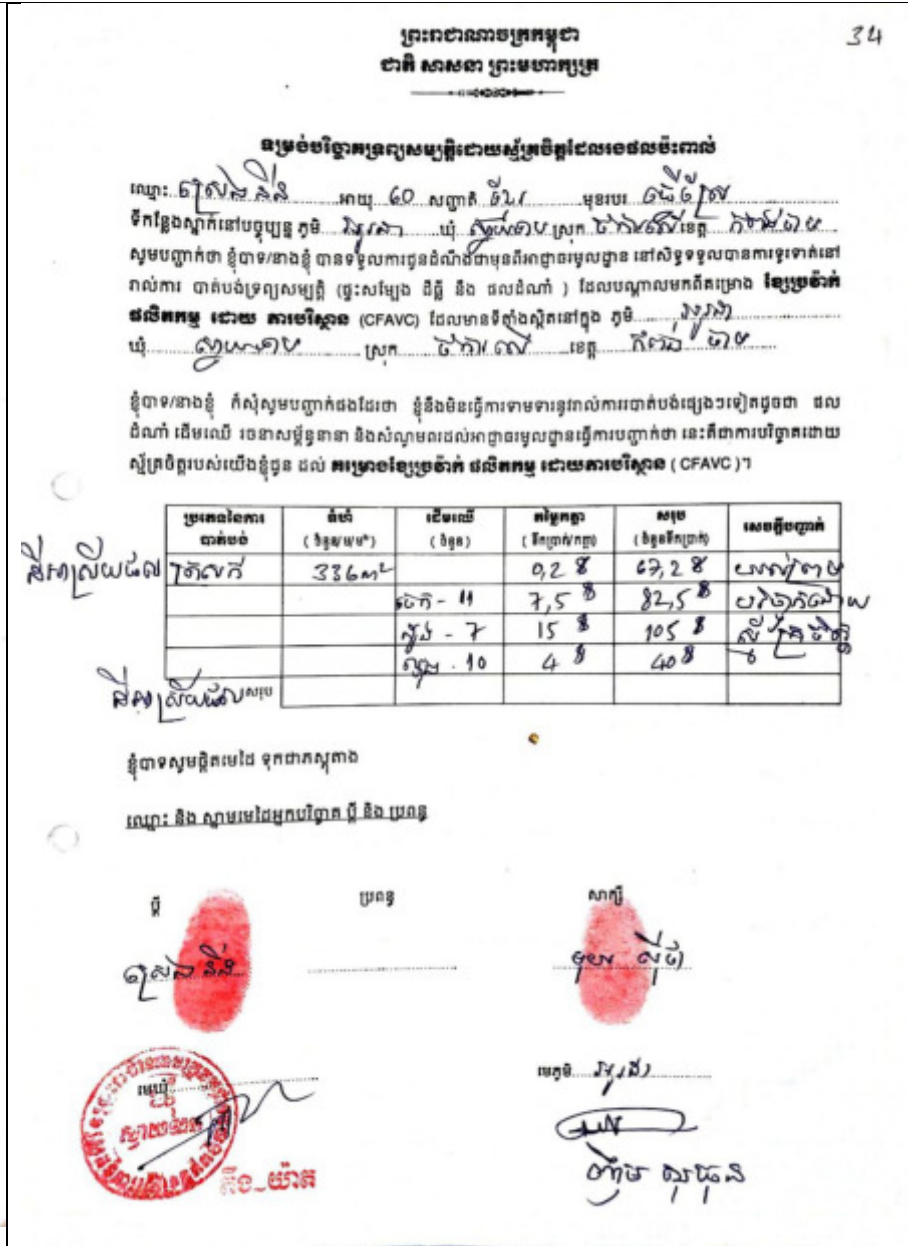 34
ព្រះរាជាណាចក្រកម្ពុជា
ជាតិ សាសនា ព្រះមហាក្សត្រ
ទម្រង់បរិច្ចាគទ្រព្យសម្បត្តិដោយស្ម័គ្រចិត្តដែលរងផលប៉ះពាល់
ឈ្មោះ អាយុ 60 សញ្ជាតិ ខ្មែរ មុខរបរ ធ្វើស្រែ
ទីកន្លែងស្នាក់នៅបច្ចុប្បន្ន ភូមិ ឃុំ ស្វាយទាប ស្រុក ចំការលើ ខេត្ត កំពង់ចាម
សូមបញ្ជាក់ថា ខ្ញុំបាទ/នាងខ្ញុំ បានទទួលការជូនដំណឹងជាមុនពីអាជ្ញាធរមូលដ្ឋាន នៅសិទ្ធទទួលបានការទូរទាត់នៅ
រាល់ការ បាត់បង់ទ្រព្យសម្បត្តិ (ផ្ទះសម្បែង ដីធ្លី និង ផលដំណាំ ) ដែលបណ្តាលមកពីគម្រោង ខ្សែច្រវ៉ាក់
ផលិតកម្ម ដោយ ភាពបរិស្ថាន (CFAVC) ដែលមានទីតាំងស្ថិតនៅក្នុង ភូមិ
ឃុំ ស្វាយទាប ស្រុក ចំការលើ ខេត្ត កំពង់ ចាម
ខ្ញុំបាទ/នាងខ្ញុំ ក៏សុំសូមបញ្ជាក់ផងដែរថា ខ្ញុំនឹងមិនធ្វើការទាមទារនូវរាល់ការបាត់បង់ផ្សេងៗទៀតដូចជា ផល
ដំណាំ ដើមឈើ រចនាសម្ព័ន្ធនានា និងសំណូមពរដល់អាជ្ញាធរមូលដ្ឋានធ្វើការបញ្ជាក់ថា នេះគឺជាការបរិច្ចាគដោយ
ស្ម័គ្រចិត្តរបស់យើងខ្ញុំជូន ដល់ គម្រោងខ្សែច្រវ៉ាក់ ផលិតកម្ម ដោយភាពបរិស្ថាន ( CFAVC )។
ប្រភេទនៃការបាត់បង់ ទំហំ ដើមឈើ (ចំនួន) តម្លៃកត្តា សរុប សេចក្តីបញ្ជាក់
ដីអាស្រ័យផល ត្រសក់ 336m² 0,2 $ 67,2 $ យល់ព្រម
ចេក - 11 7,5 $ 82,5 $ បរិច្ចាកដោយ
7 15 $ 105 $ ស្ម័គ្រចិត្ត
ល្ហុង - 10 4 $ 40 $
ដីអាស្រ័យផល សរុប
ខ្ញុំបាទសូមផ្តិតមេដៃ ទុកជាភស្តុតាង
ឈ្មោះ និង ស្នាមមេដៃអ្នកបរិច្ចាគ ប្តី និង ប្រពន្ធ
ប្តី ប្រពន្ធ សាក្សី
មេឃុំ មេភូមិ
ស្វាយទាប
គឹង_យ៉ាត